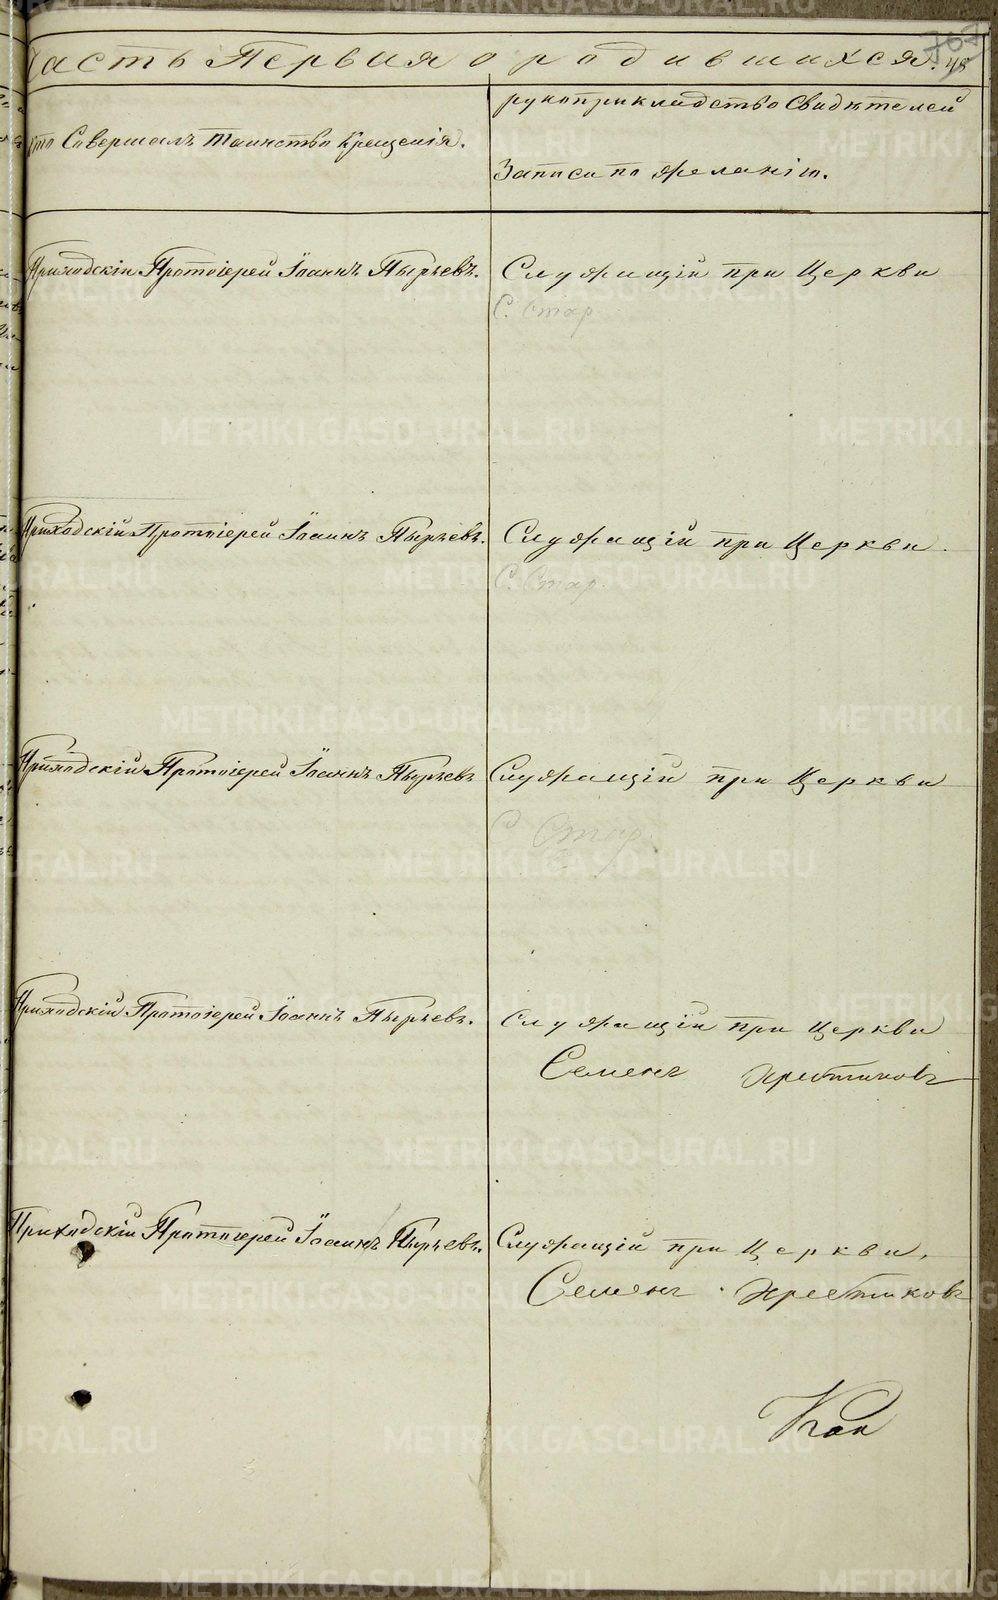 Часть Первая о родившихся. 48
767
Кто Совершалъ Таинство Крещенія.
рукоприкладство Свидѣтелей
Записи по желанію.
Приходскій Протоіерей Іоаннъ Пырьевъ.
Служащій при Церкви
С. Стар
Приходскій Протоіерей Іоаннъ Пырьевъ.
Служащій при Церкви.
С. Стар.
Приходскій Протоіерей Іоаннъ Пырьевъ
Служащій при Церкви
С. Стар.
Приходскій Протоіерей Іоаннъ Пырьевъ.
Служащій при Церкви
Семенъ
Приходскій Протоіерей Іоаннъ Пырьевъ.
Служащій при Церкви,
Семенъ
METRIKI.GASO-URAL.RU